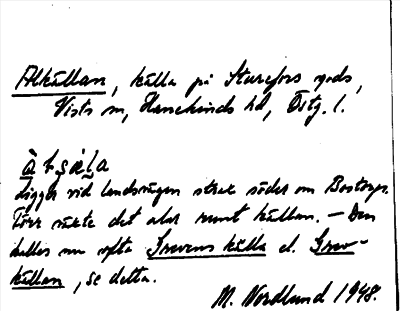 Alkällan, källa på Sturefors gods,
Vists sn, Hanekinds hd, Östg. l.
Ligger vid landsvägen strax söder om Bostorp.
Förr växte det alar runt källan. – Den
kallas nu ofta Grevens källa el. Grev-
källan, se detta.
M. Nordlund 1948.